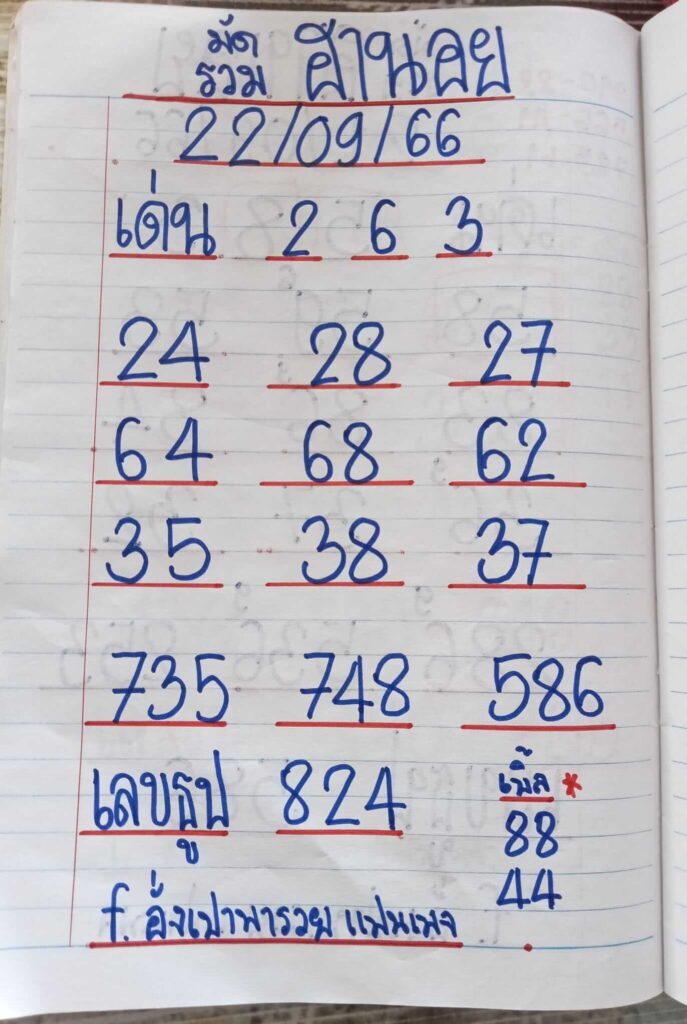 มัด
รวม ฮานอย
22/09/66
เด่น 2 6 3
24 28 27
64 68 62
35 38 37
735 748 586
เลขธูป 824 เบิ้ล *
88
44
f. อั่งเปาพารวย แฟนเพจ